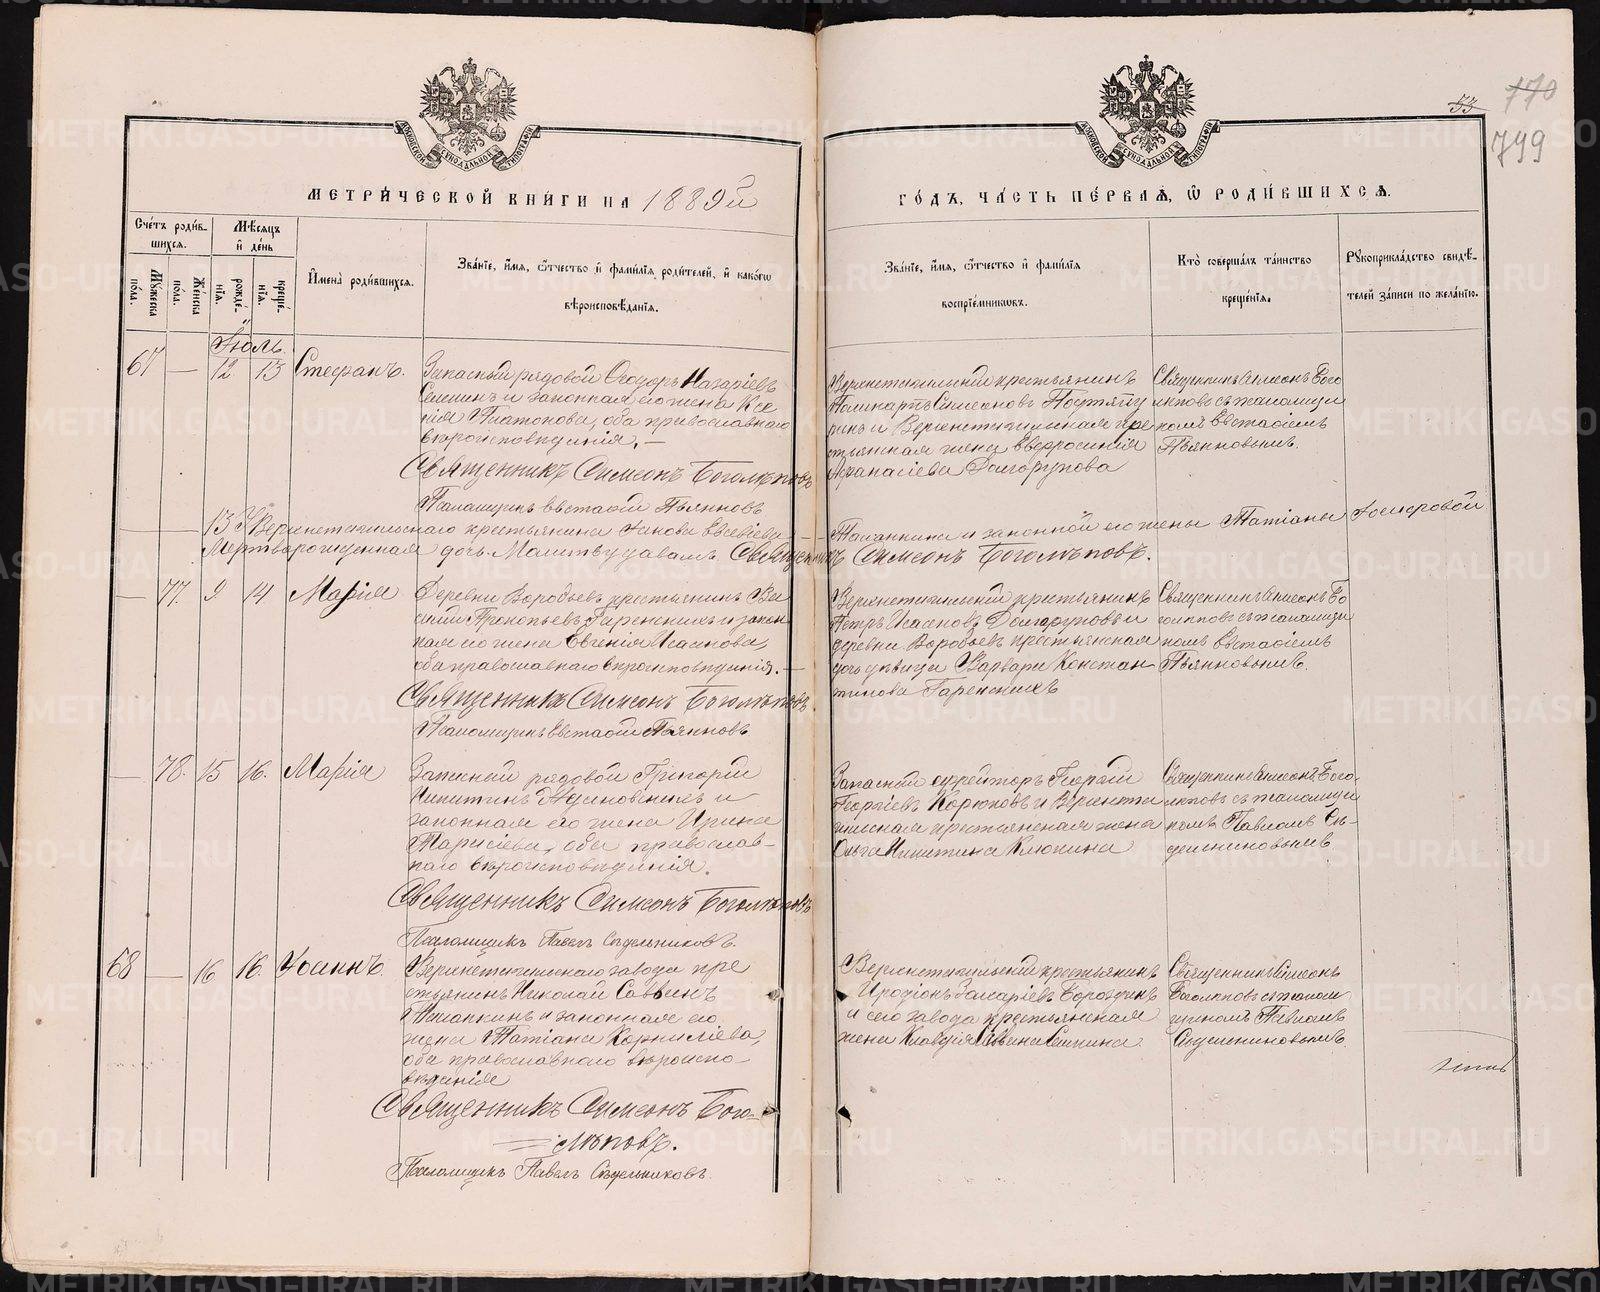 53 170
799
МОСКОВСКОЙ СѴНОДАЛЬНОЙ ТИПОГРАФІИ
МОСКОВСКОЙ СѴНОДАЛЬНОЙ ТИПОГРАФІИ
МЕТРИЧЕСКОЙ КНИГИ НА 1889й
ГОДЪ, ЧАСТЬ ПЕРВАЯ, Ѡ РОДИВШИХСЯ.
Счетъ родив-
шихся.
Мужеска пола.
Женска пола.
Мѣсяцъ и день
рожде-нія.
креще-нія.
Имена родившихся.
Званіе, имя, ѿчество и фамилія родителей, и какогѡ
вѣроисповѣданія.
Званіе, имя, ѿчество и фамилія
воспріемникѡвъ.
Кто совершалъ таинство
крещенія.
Рукоприкладство свидѣ-
телей записи по желанію.
Іюль.
67 — 12 13 Стефанъ.
Запасный рядовой Ѳеодоръ Назаріевъ
и законная его жена Ксе
нія Платонова, оба православнаго
вѣроисповѣданія. —
Священникъ Симеонъ Боголѣповъ
Псаломщикъ Евстафій Пьянковъ
Верхнетагильскій крестьянинъ
Поликарпъ Симеоновъ
и Верхнетагильская кре
стьянская жена Евфросинія
Афанасіева Долгорукова
Священникъ Симеонъ Бого
лѣповъ съ псаломщи
комъ Евстафіемъ
Пьянковымъ.
— 13 У Верхнетагильскаго крестьянина Іакова Евсевіева —
и законной его жены Татіаны
Мертворожденная дочь. Молитву давалъ Священникъ Симеонъ Боголѣповъ.
— 77. 9 14 Марія
Деревни Воробьевъ крестьянинъ Ва
силій Прокопьевъ Гаренскихъ и закон
ная его жена Евгенія Исакова,
оба православнаго вѣроисповѣданія. —
Священникъ Симеонъ Боголѣповъ.
Псаломщикъ Евстафій Пьянковъ
Верхнетагильскій крестьянинъ
Петръ Исааковъ Долгоруковъ и
деревни Воробьевъ крестьянская
дочь дѣвица Варвара Констан
тинова Гаренскихъ
Священникъ Симеонъ Бо
голѣповъ съ псаломщи
комъ Евстафіемъ
Пьянковымъ.
— 78. 15 16. Марія
Запасный рядовой Григорій
Никитинъ и
законная его жена Ирина
Тарасіева, оба православ-
наго вѣроисповѣданія.
Священникъ Симеонъ Боголѣповъ
Псаломщикъ Павелъ Сѣдельниковъ.
Запасный ефрейторъ Георгій
Георгіевъ Корюковъ и Верхнета
гильская крестьянская жена
Ольга Никитина Клюкина
Священникъ Симеонъ Бого-
лѣповъ съ псаломщи
комъ Павломъ Сѣ-
дельниковымъ
68 — 16 16. Іоаннъ.
Верхнетагильскаго завода кре
стьянинъ Николай Саввинъ
и законная его
жена Татіана Корниліева,
оба православнаго вѣроиспо-
вѣданія
Священникъ Симеонъ Бого-
лѣповъ.
Псаломщикъ Павелъ Сѣдельниковъ.
Верхнетагильскій крестьянинъ
Иродіонъ Захаріевъ Бороздинъ
и сего завода крестьянская
жена Клавдія
Священникъ Симеонъ
Боголѣповъ съ псалом
щикомъ Павломъ
Сѣдельниковымъ